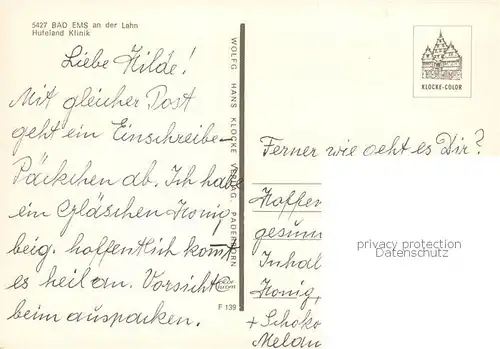 5427 BAD EMS an der Lahn
Hufeland Klinik
Liebe Hilde!
Mit gleicher Post
geht ein Einschreibe-
Päckchen ab. Ich habe
ein Gläschen Honig
beig. hoffentlich komt
es heil an. Vorsicht
beim auspacken.
WOLFG HANS KLOCKE VERLAG · PADERBORN
F 139
KLOCKE-COLOR
Ferner wie geht es Dir?
Hoffen
gesun
Inhal
Honig,
+ Schoko
Melan
privacy protection
Datenschutz